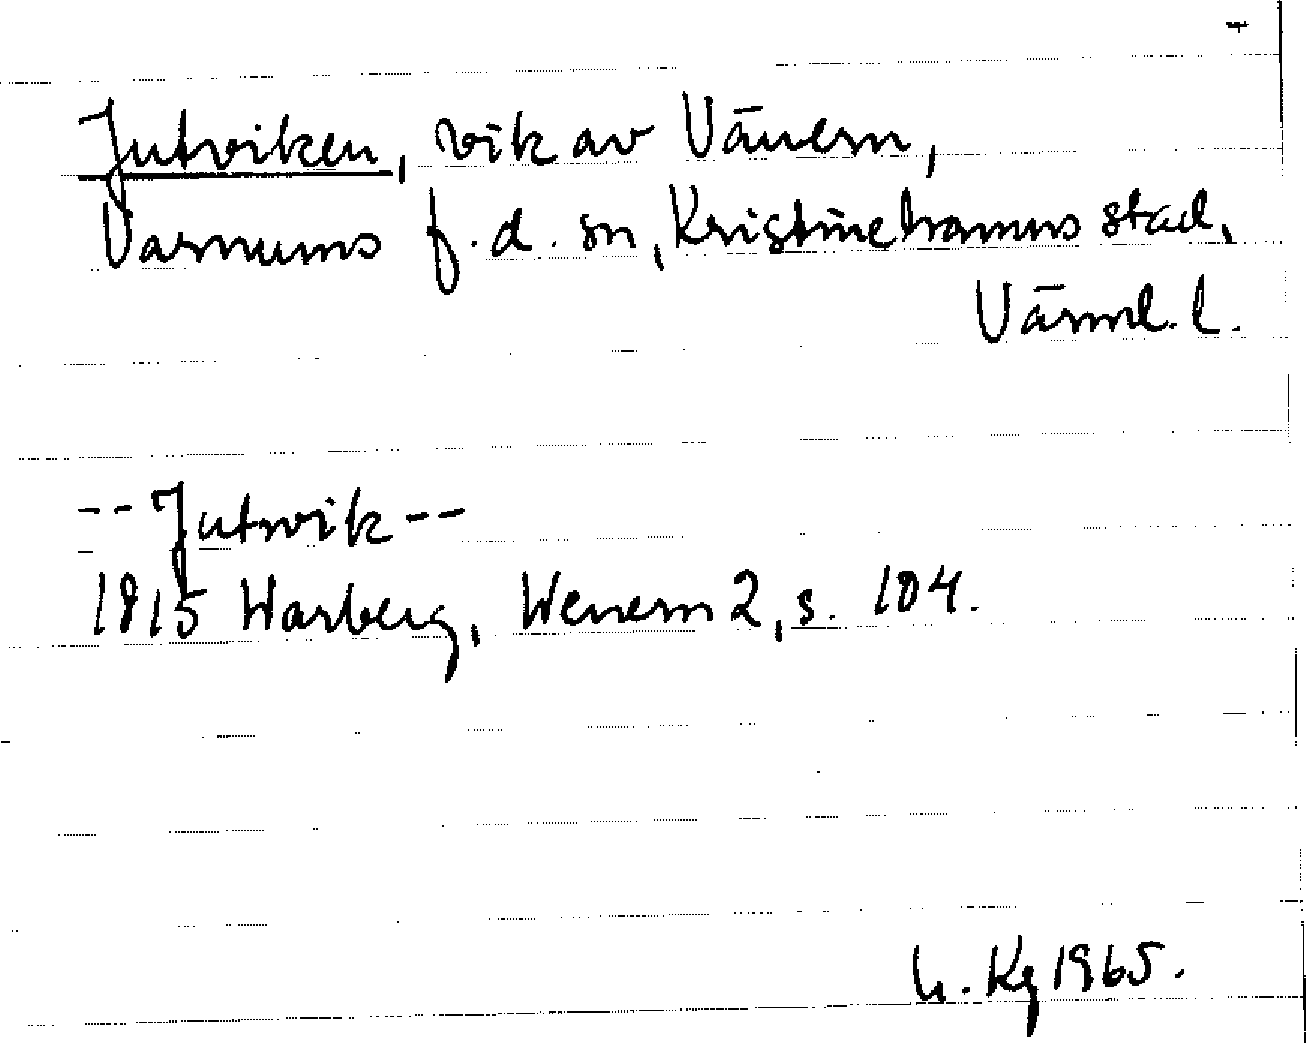 Jutviken, vik av Vänern,
Varnums f.d. sn, Kristinehamns stad,
Värml. l.
-- Jutvik --
1815 Warberg, Wenern 2, s. 104.
h. Kg 1965.